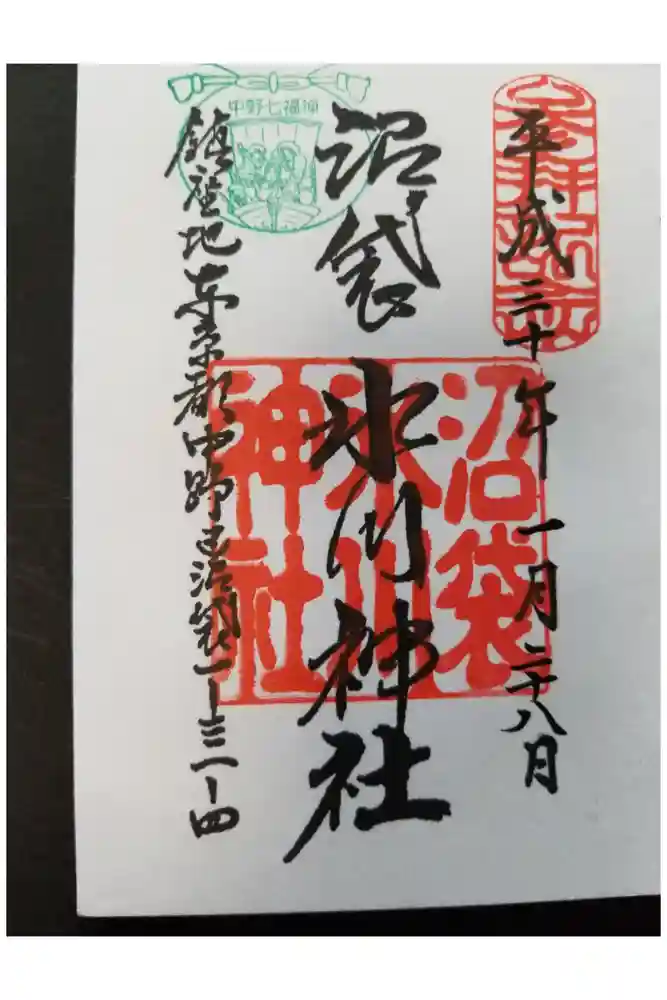 平成三十年一月二十八日
沼袋
氷川
神社
沼袋 氷川神社
中野七福神
鎮座地東京都中野区沼袋一ー三一ー四